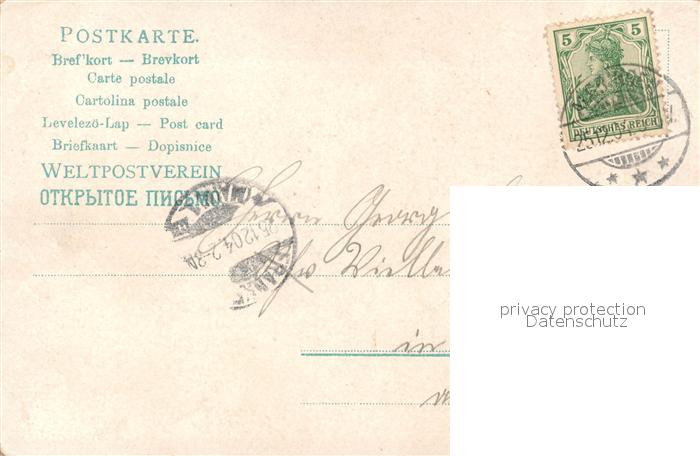 POSTKARTE.
Bref'kort — Brevkort
Carte postale
Cartolina postale
Levelezö-Lap — Post card
Briefkaart — Dopisnice
WELTPOSTVEREIN
ОТКРЫТОЕ ПИСЬМО.
5 5
DEUTSCHES REICH
25.12.04
25.12.04. 2-3N
Herrn Georg
in
privacy protection
Datenschutz